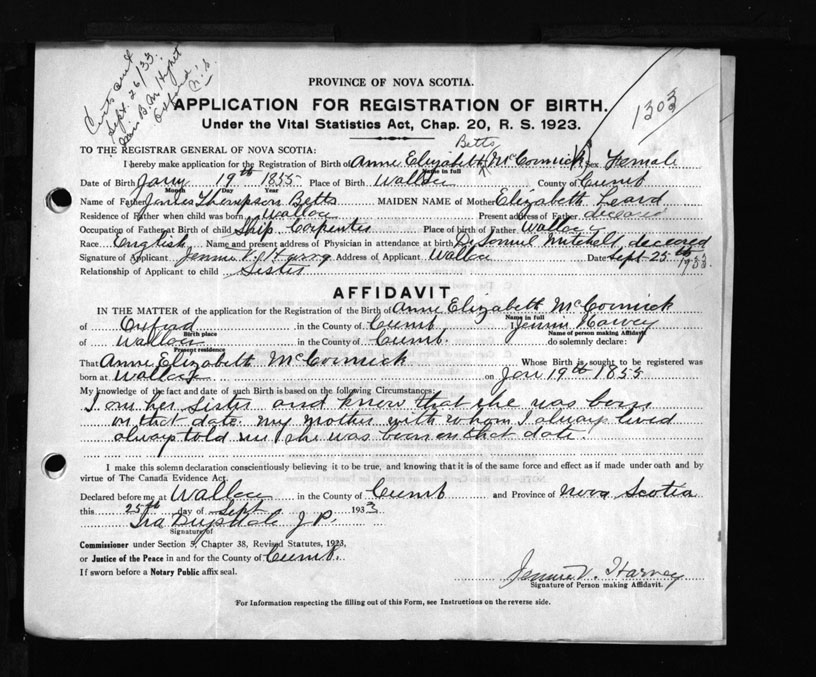 Cert. sent
Sept. 26/33
B. M.
Oxford,
N.S.
1303
PROVINCE OF NOVA SCOTIA.
APPLICATION FOR REGISTRATION OF BIRTH.
Under the Vital Statistics Act, Chap. 20, R. S. 1923.
TO THE REGISTRAR GENERAL OF NOVA SCOTIA:
Betts
I hereby make application for the Registration of Birth of Anne Elizabeth McCormick Sex Female
Name in full
Date of Birth Jany 19th 1855 Place of Birth Wallace County of Cumb
Month Day Year
Name of Father James Thompson Betts MAIDEN NAME of Mother Elizabeth Leard
Residence of Father when child was born Wallace Present address of Father deceased
Occupation of Father at Birth of child Ship Carpenter Place of birth of Father Wallace
Race English Name and present address of Physician in attendance at birth Dr Samuel Mitchell, deceased
Signature of Applicant Jennie V. Harvey Address of Applicant Wallace Date Sept 25th 1933.
Relationship of Applicant to child Sister
AFFIDAVIT
IN THE MATTER of the application for the Registration of the Birth of Anne Elizabeth McCormick
Name in full
of Oxford in the County of Cumb I Jennie Harvey
Birth place Name of person making Affidavit
of Wallace in the County of Cumb. do solemnly declare:
Present residence
That Anne Elizabeth McCormick Whose Birth is sought to be registered was
born at Wallace on Jan 19th 1855
My knowledge of the fact and date of such Birth is based on the following Circumstances:
I am her Sister and know that she was born
on that date. My mother with whom I always lived
always told me she was born on that date.
I make this solemn declaration conscientiously believing it to be true, and knowing that it is of the same force and effect as if made under oath and by
virtue of The Canada Evidence Act.
Declared before me at Wallace in the County of Cumb and Province of Nova Scotia
this 25th day of Sept 1933
Ira Drysdale J.P.
Signature of
Commissioner under Section 5, Chapter 38, Revised Statutes, 1923,
or Justice of the Peace in and for the County of Cumb.
If sworn before a Notary Public affix seal.
Jennie V. Harvey
Signature of Person making Affidavit.
For Information respecting the filling out of this Form, see Instructions on the reverse side.